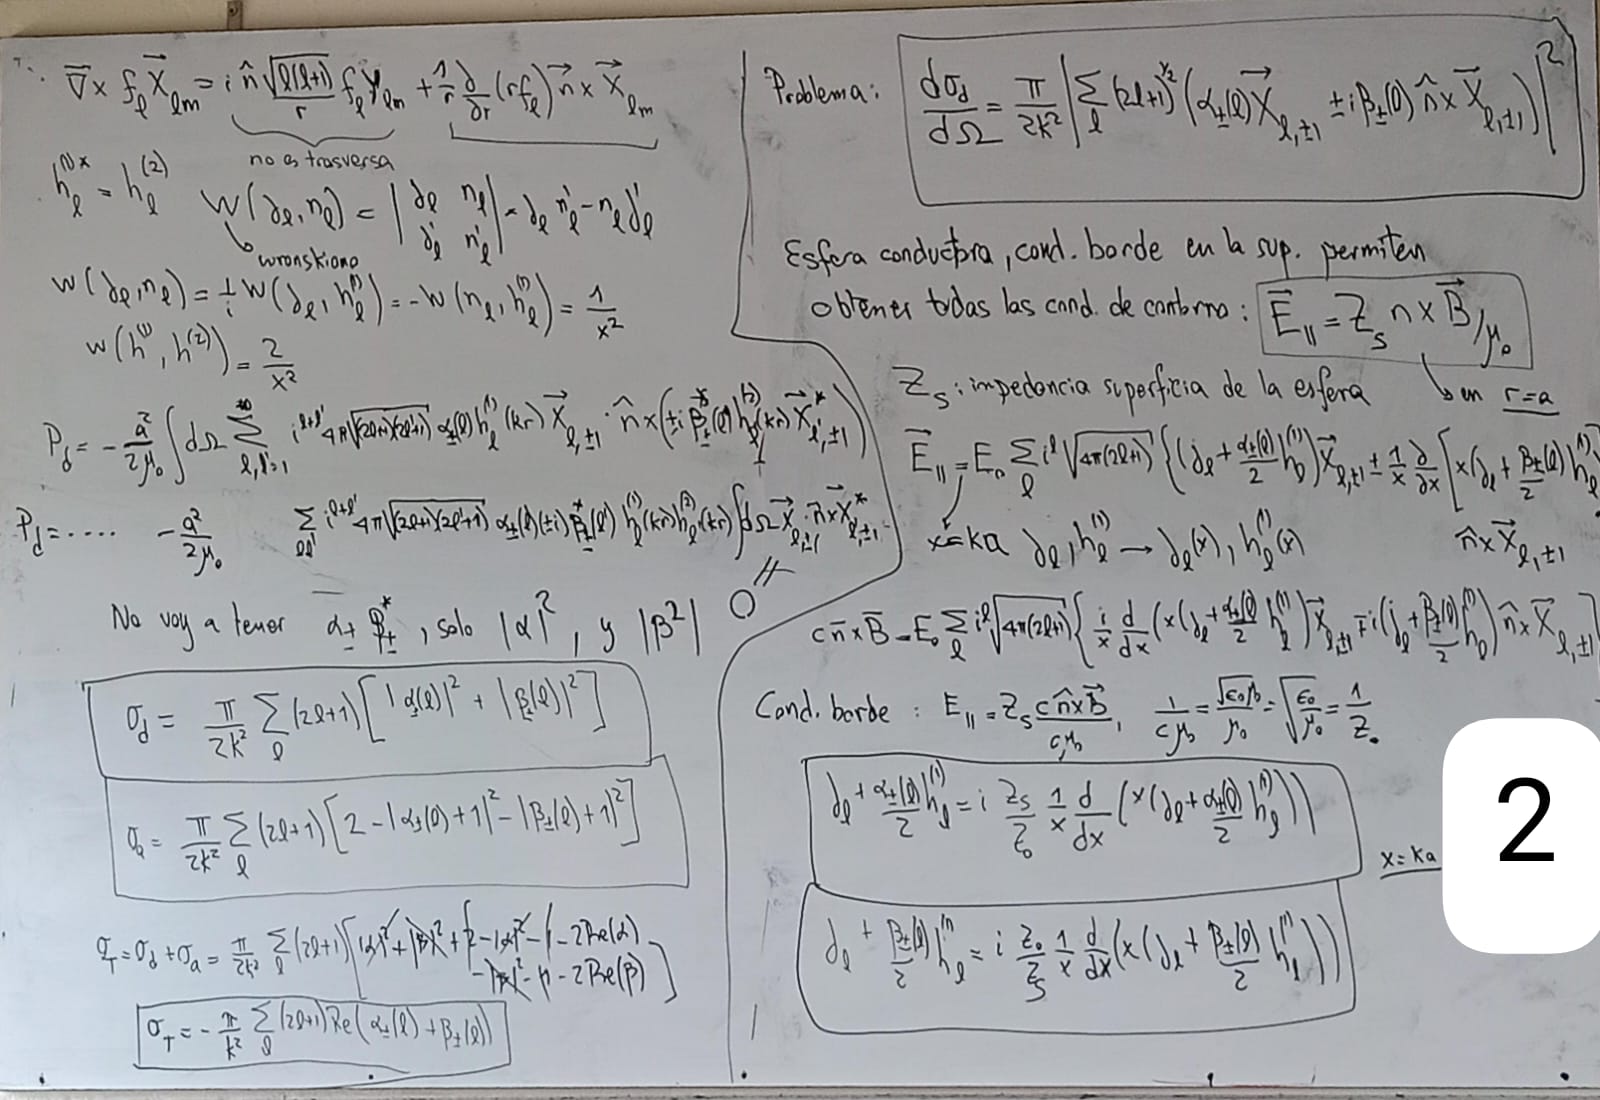 ∴ ∇⃗ × f_ℓ X⃗_ℓm = i n̂ √(ℓ(ℓ+1))/r f_ℓ Y_ℓm + 1/r ∂/∂r (r f_ℓ) n⃗ × X⃗_ℓm
no es trasversa
h_ℓ^(1)* = h_ℓ^(2)
W(j_ℓ, n_ℓ) = | j_ℓ n_ℓ ; j'_ℓ n'_ℓ | = j_ℓ n'_ℓ - n_ℓ j'_ℓ
wronskiano
W(j_ℓ, n_ℓ) = 1/i W(j_ℓ, h_ℓ^(1)) = -W(n_ℓ, h_ℓ^(1)) = 1/x²
W(h^(1), h^(2)) = 2/x²
P_d = - a²/2μ₀ ∫ dΩ Σ_{ℓ,ℓ'=1}^∞ i^{ℓ+ℓ'} 4π √((2ℓ+1)(2ℓ'+1)) α±(ℓ) h_ℓ^(1)(kr) X⃗_ℓ,±1 · n̂ × (±i β±*(ℓ') h_ℓ'^(2)(kr) X⃗*_ℓ',±1)
P_d = .... - a²/2μ₀ Σ_ℓℓ' i^{ℓ+ℓ'} 4π √((2ℓ+1)(2ℓ'+1)) α±(ℓ)(±i) β±*(ℓ') h_ℓ^(1)(kr) h_ℓ'^(2)(kr) ∫ dΩ X⃗_ℓ,±1 · n × X⃗*_ℓ',±1
= 0
No voy a tener α± β±*, solo |α|², y |β²|
σ_d = π/2k² Σ_ℓ (2ℓ+1) [ |α±(ℓ)|² + |β±(ℓ)|² ]
σ_a = π/2k² Σ_ℓ (2ℓ+1) [ 2 - |α±(ℓ)+1|² - |β±(ℓ)+1|² ]
σ_T = σ_d + σ_a = π/2k² Σ_ℓ (2ℓ+1) [ |α|² + |β|² + 2 - |α|² - 1 - 2Re(α)
- |β|² - 1 - 2Re(β) ]
σ_T = - π/k² Σ_ℓ (2ℓ+1) Re(α±(ℓ) + β±(ℓ))
Problema: dσ_d/dΩ = π/2k² | Σ_ℓ (2ℓ+1)^½ (α±(ℓ) X⃗_ℓ,±1 ± i β±(ℓ) n̂ × X⃗_ℓ,±1) |²
Esfera conductora, cond. borde en la sup. permiten
obtener todas las cond. de contorno: E⃗_∥ = Z_s n × B⃗/μ₀
Z_s: impedancia superficia de la esfera
en r=a
E⃗_∥ = E₀ Σ_ℓ i^ℓ √(4π(2ℓ+1)) { (j_ℓ + α±(ℓ)/2 h_ℓ^(1)) X⃗_ℓ,±1 ± 1/x ∂/∂x [ x(j_ℓ + β±(ℓ)/2 h_ℓ^(1)
n̂ × X⃗_ℓ,±1
x=ka j_ℓ, h_ℓ^(1) → j_ℓ(x), h_ℓ^(1)(x)
c n̄ × B̄ = E₀ Σ_ℓ i^ℓ √(4π(2ℓ+1)) { i/x d/dx (x(j_ℓ + α±(ℓ)/2 h_ℓ^(1)) X⃗_ℓ,±1 ∓ i (j_ℓ + β±(ℓ)/2 h_ℓ^(1)) n̂ × X⃗_ℓ,±1 ]
Cond. borde : E_∥ = Z_s c n̂ × B⃗ / cμ₀, 1/cμ₀ = √(ε₀μ₀)/μ₀ = √(ε₀/μ₀) = 1/Z₀
j_ℓ + α±(ℓ)/2 h_ℓ^(1) = i Z_s/Z₀ 1/x d/dx (x(j_ℓ + α±(ℓ)/2 h_ℓ^(1)))
x=ka
j_ℓ + β±(ℓ)/2 h_ℓ^(1) = i Z₀/Z_s 1/x d/dx (x(j_ℓ + β±(ℓ)/2 h_ℓ^(1)))
2